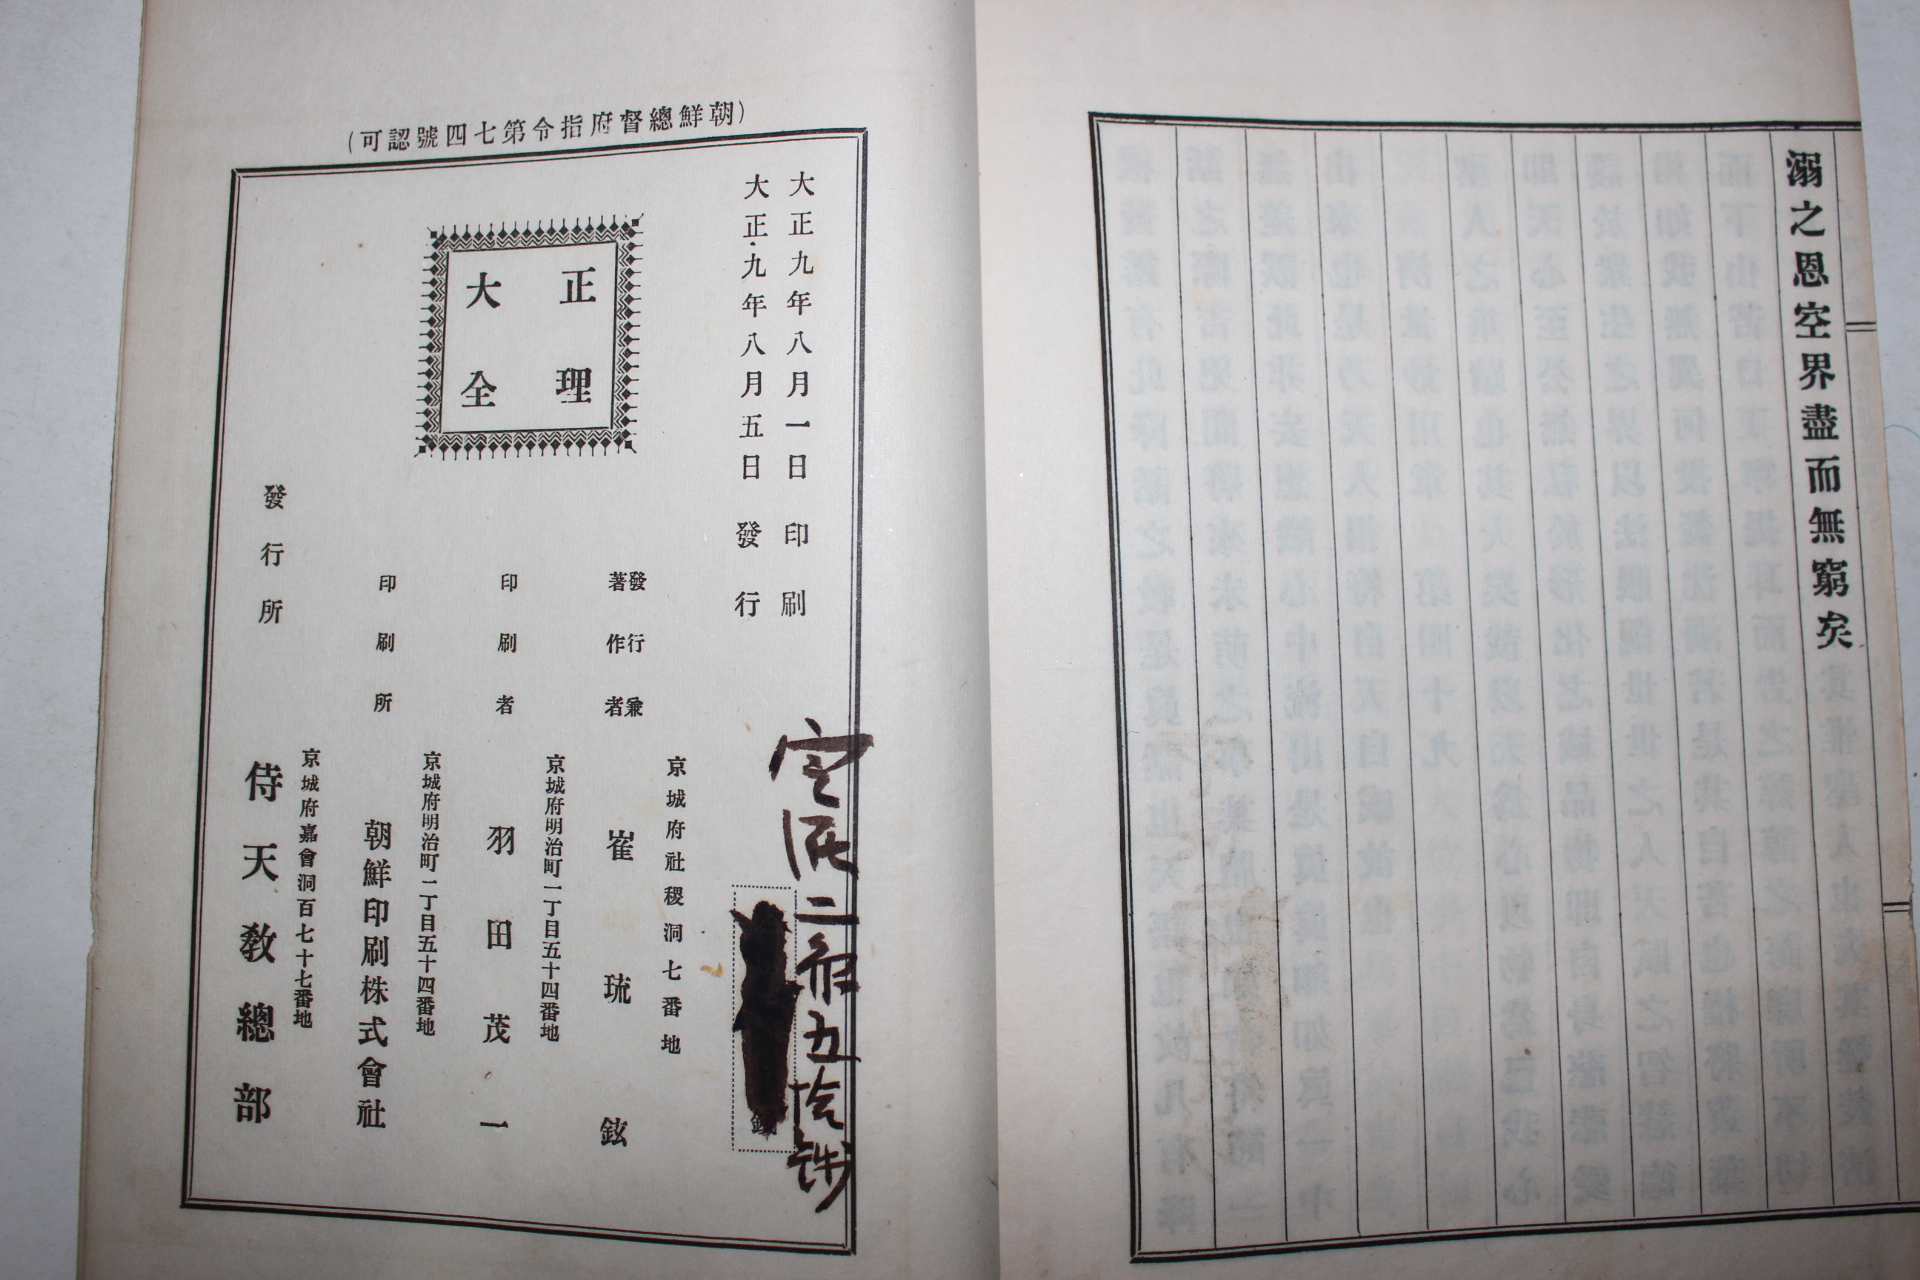 溺之恩空界盡而無窮矣
(朝鮮總督府指令第七四號認可)
大正九年八月一日印刷
大正九年八月五日發行
定價二圓五拾錢
正理
大全
京城府社稷洞七番地
發行兼
著作者
崔琉鉉
京城府明治町一丁目五十四番地
印刷者
羽田茂一
京城府明治町一丁目五十四番地
印刷所
朝鮮印刷株式會社
京城府嘉會洞百七十七番地
發行所
侍天敎總部